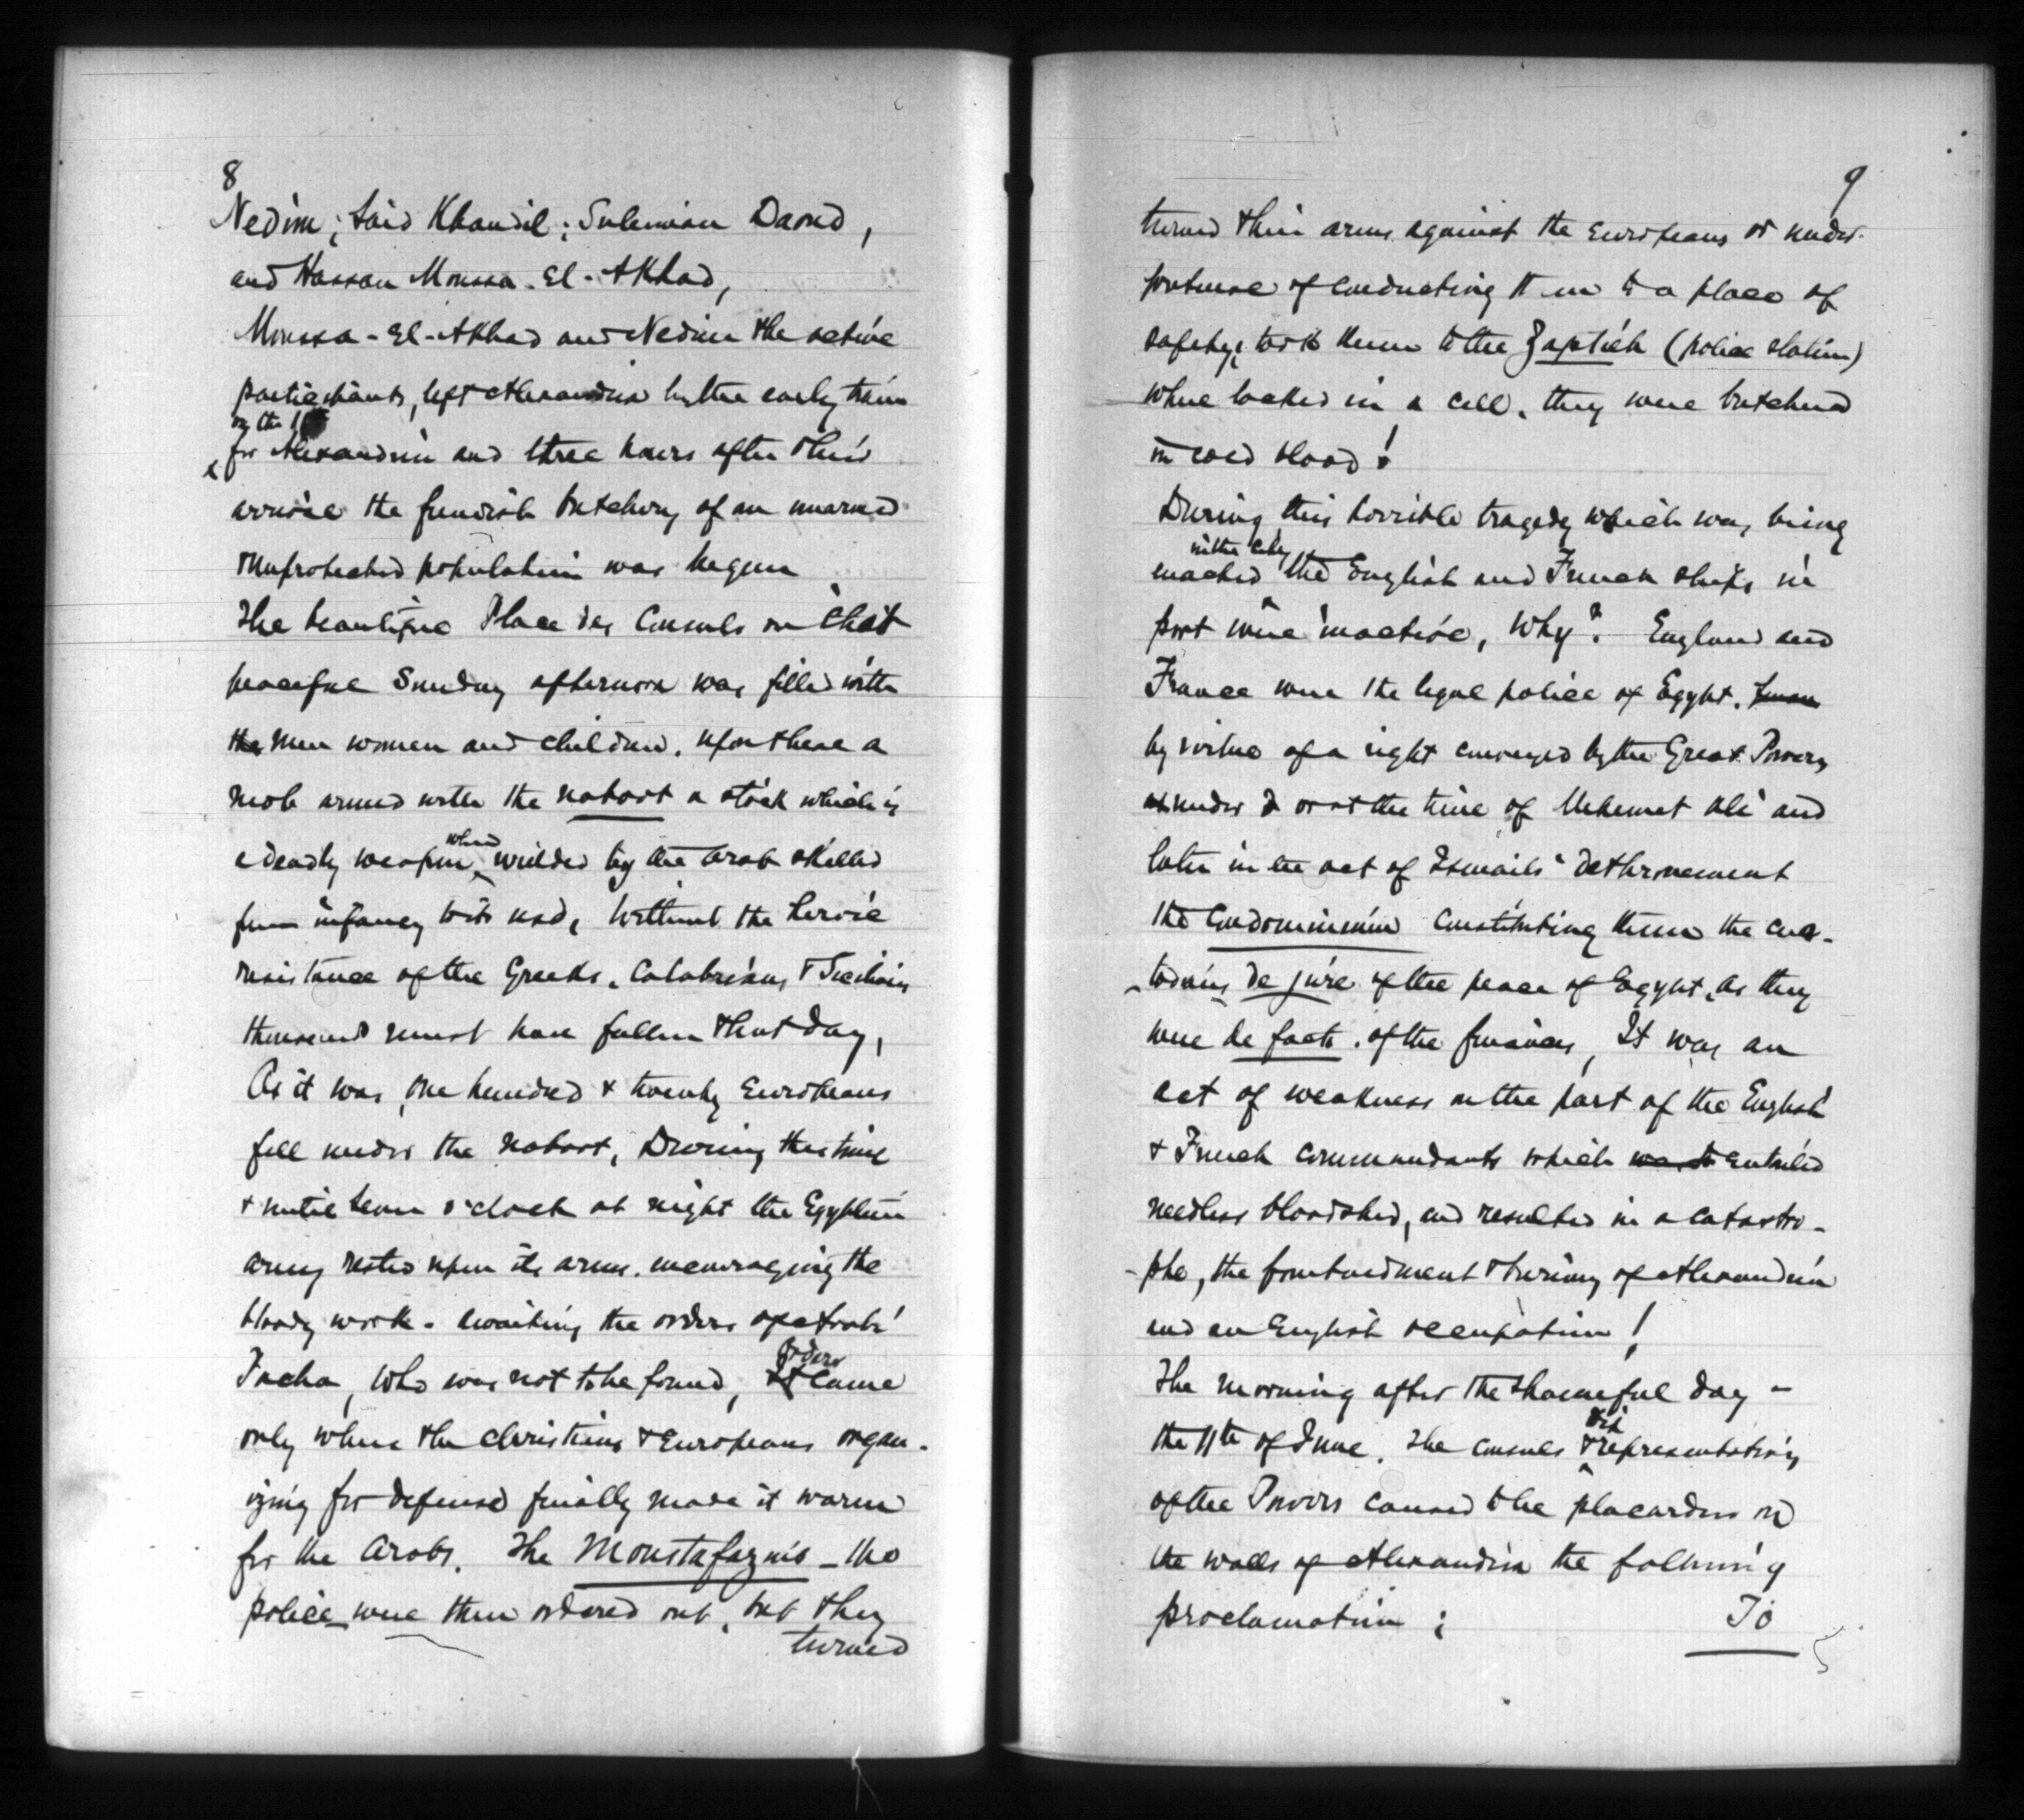 8
Nedim; Said Khandil; Suleiman Daoud,
and Hassan Moussa-El-Akhad,
Moussa-El-Akhad and Nedim the active
participants, left Alexandria by the early train
on the 11
for Alexandria and three hours after their
arrival the fiendish butchery of an unarmed
& unprotected population was begun
The beautiful Place des Consuls on that
peaceful Sunday afternoon was filled with
the men women and children. Upon these a
mob armed with the naboot a stick which is
a deadly weapon when wielded by the Arab skilled
from infancy to its use, Without the heroic
resistance of the Greeks, Calabrians & Sicilians
thousands must have fallen that day,
As it was, one hundred & twenty Europeans
fell under the naboot, During this time
& until seven o'clock at night the Egyptian
army rested upon its arms. encouraging the
bloody work - awaiting the orders of Arabi
Pacha, who was not to be found, It orders came
only when the Christians & Europeans organ-
izing for defense finally made it warm
for the Arabs. The Moustafaznis - the
police - were then ordered out, but they
turned
9
turned their arms against the Europeans or under
pretense of conducting them to a place of
safety, took them to the Zaptieh (police station)
where locked in a cell, they were butchered
in cold blood!
During this horrible tragedy which was being
enacted in the city the English and French ships in
port were inactive, Why? England and
France were the legal police of Egypt.
by virtue of a right conveyed by the Great Powers
under or at the time of Mehemet Ali and
later in the act of Ismails' dethronement
the Condominium constituting them the cus-
-todians de jure of the peace of Egypt, as they
were de facto. of the finances, It was an
act of weakness on the part of the English
& French commandants which was it entailed
needless bloodshed, and resulted in a catastro-
-phe, the bombardment & burning of Alexandria
and an English occupation!
The morning after the shameful day -
the 11th of June. The consuls & representatives
of the Powers caused to be placarded on
the walls of Alexandria the following
proclamation:
To